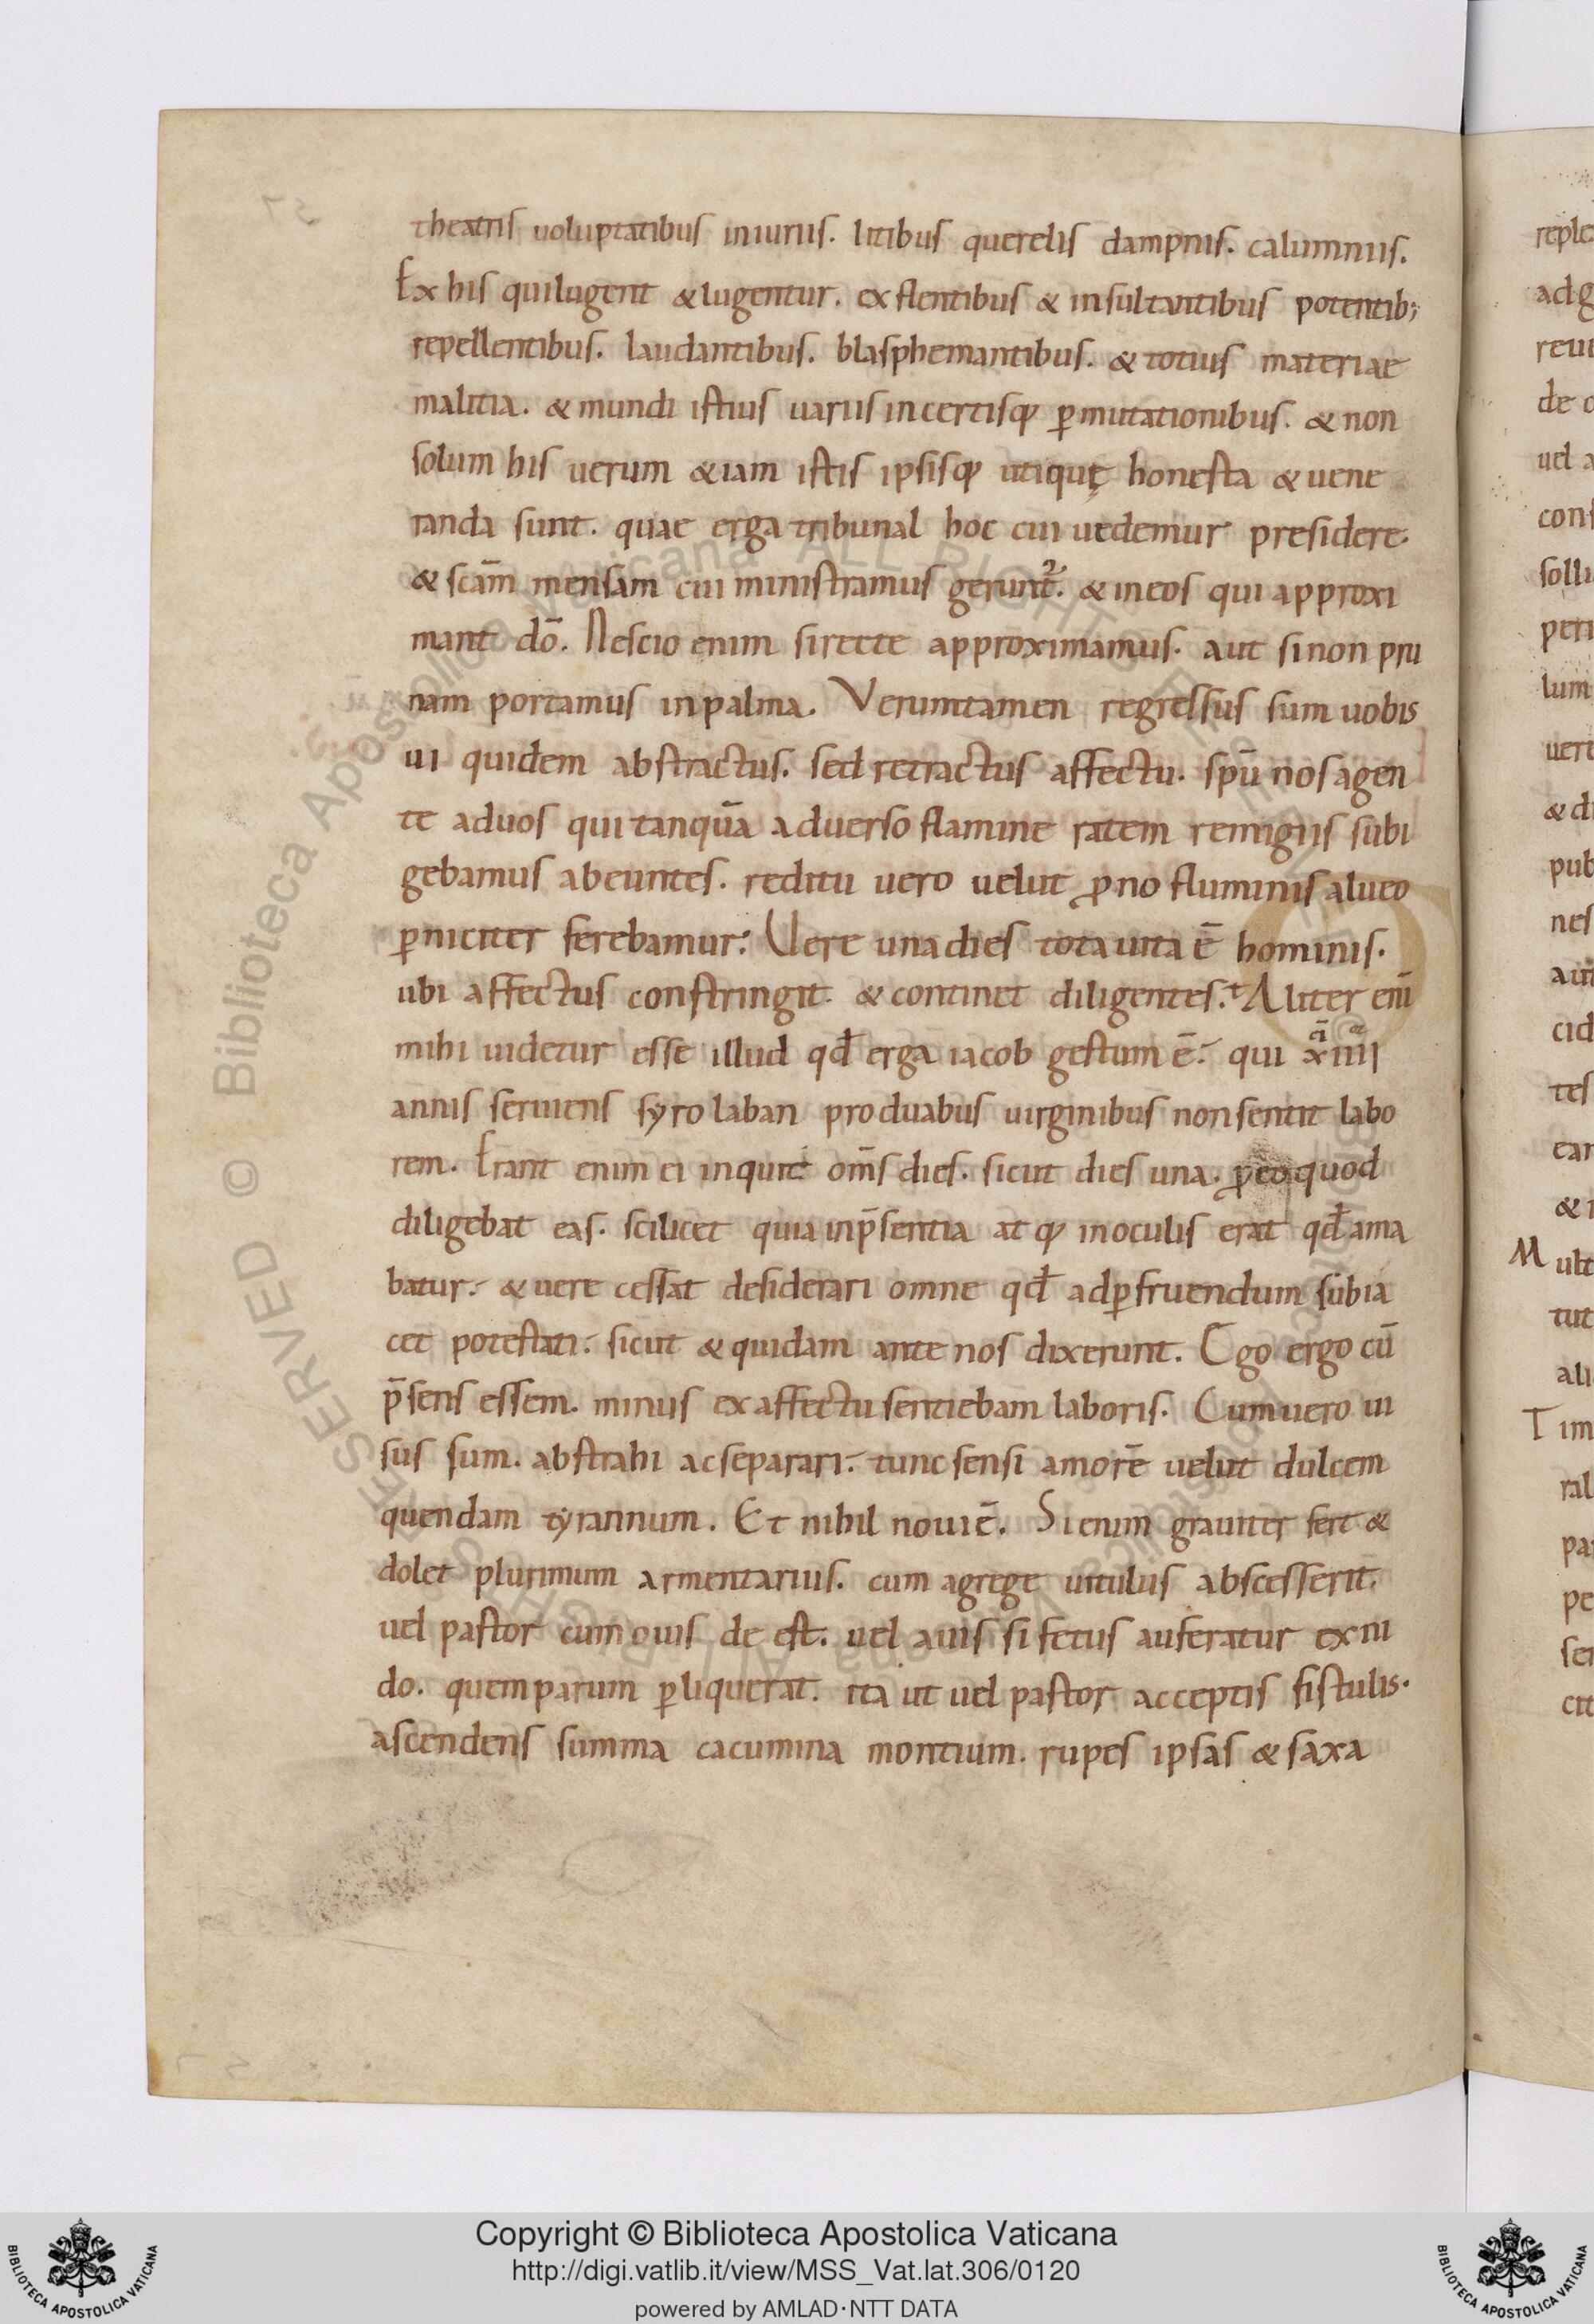 theatris uoluptatibus iniuriis. litibus querelis dampnis. calumniis.
Ex his qui lugent & lugentur. ex flentibus & insultantibus potentib;
repellentibus. laudantibus. blasphemantibus. & totius materiae
malitia. & mundi istius uariis incertisq; ꝑmutationibus. & non
solum his uerum &iam istis ipsisq; utiquę honesta & uene
randa sunt. quae erga tribunal hoc cui uedemur presidere.
& scām mensam cui ministramus gerunt᷑. & in eos qui approxi
mant dō. Nescio enim si recte approximamus. aut si non pru
nam portamus in palma. Veruntamen regressus sum uobis
ui quidem abstractus. sed retractus affectu. spū nos agen
te ad uos qui tanquā aduerso flamine ratem remigiis subi
gebamus abeuntes. reditu uero uelut ꝓno fluminis alueo
ꝑniciter ferebamur. Uere una dies tota uita ē hominis.
ubi affectus constringit. & continet diligentes. Aliter enī
mihi uidetur esse illud qđ erga iacob gestum ē. qui xiiii
annis seruiens syro laban pro duabus uirginibus non sentit labo
rem. Erant enim ei inquit om̄s dies. sicut dies una. ꝓ eo quod
diligebat eas. scilicet quia in p̄sentia at q; in oculis erat qđ ama
batur. & uere cessat desiderari omne qđ ad ꝑfruendum subia
cet potestati. sicut & quidam ante nos dixerunt. Ego ergo cū
p̄sens essem. minus ex affectu sentiebam laboris. Cum uero ui
sus sum. abstrahi ac separari. tunc sensi amorē uelut dulcem
quendam tyrannum. Et nihil noui ē. Si enim grauiter fert &
dolet plurimum armentarius. cum a grege uitulus abscesserit.
uel pastor cum ouis de est. uel auis si fetus auferatur ex ni
do. quem parum ꝑliquerat. ita ut uel pastor acceptis fistulis.
ascendens summa cacumina montium. rupes ipsas & saxa
reple
ad g
reui
de
uel a
cons
solli
peri
lum
uere
& di
pub
nes
aut
cid
tes
ear
&
M ult
tut
ali
T im
ral
par
pe
ser
cit
Biblioteca Apostolica Vaticana ALL RIGHTS RESERVED ©
Copyright © Biblioteca Apostolica Vaticana
http://digi.vatlib.it/view/MSS_Vat.lat.306/0120
powered by AMLAD·NTT DATA
BIBLIOTECA APOSTOLICA VATICANA
BIBLIOTECA APOSTOLICA VATICANA